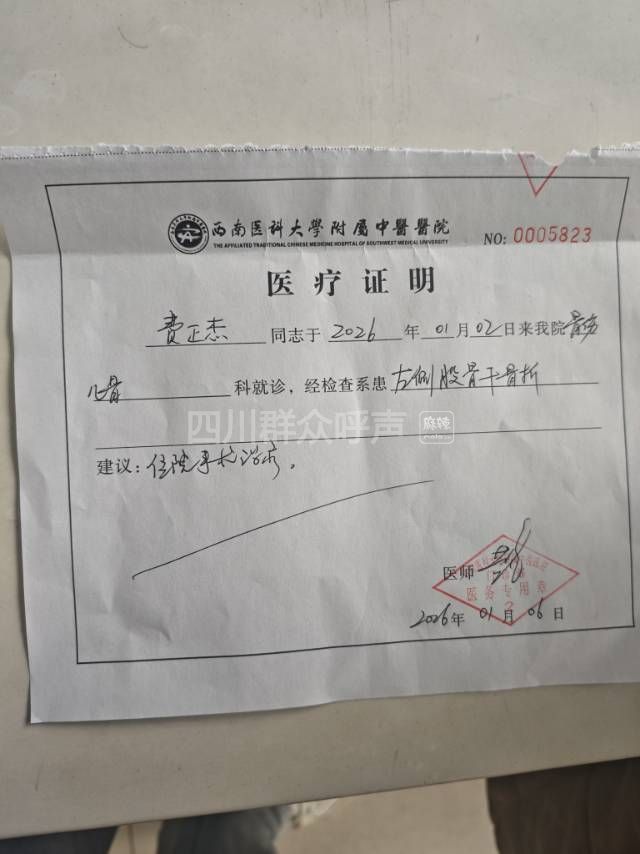 西南医科大学附属中醫醫院
THE AFFILIATED TRADITIONAL CHINESE MEDICINE HOSPITAL OF SOUTHWEST MEDICAL UNIVERSITY
NO: 0005823
医疗证明
费正杰 同志于 2026 年 01 月 02 日来我院骨伤
儿骨 科就诊，经检查系患 左侧股骨干骨折
四川群众呼声 麻辣
建议：住院手术治疗。
医师
医务专用章
2
2026年 01 月 06 日